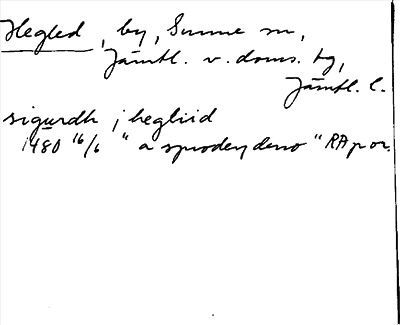 Hegled, by, Sunne sn,
Jämtl. v. doms. tg,
Jämtl. l.
sigurdh j hegliid
1480 16/6 " a sprodey deno " RAp or.